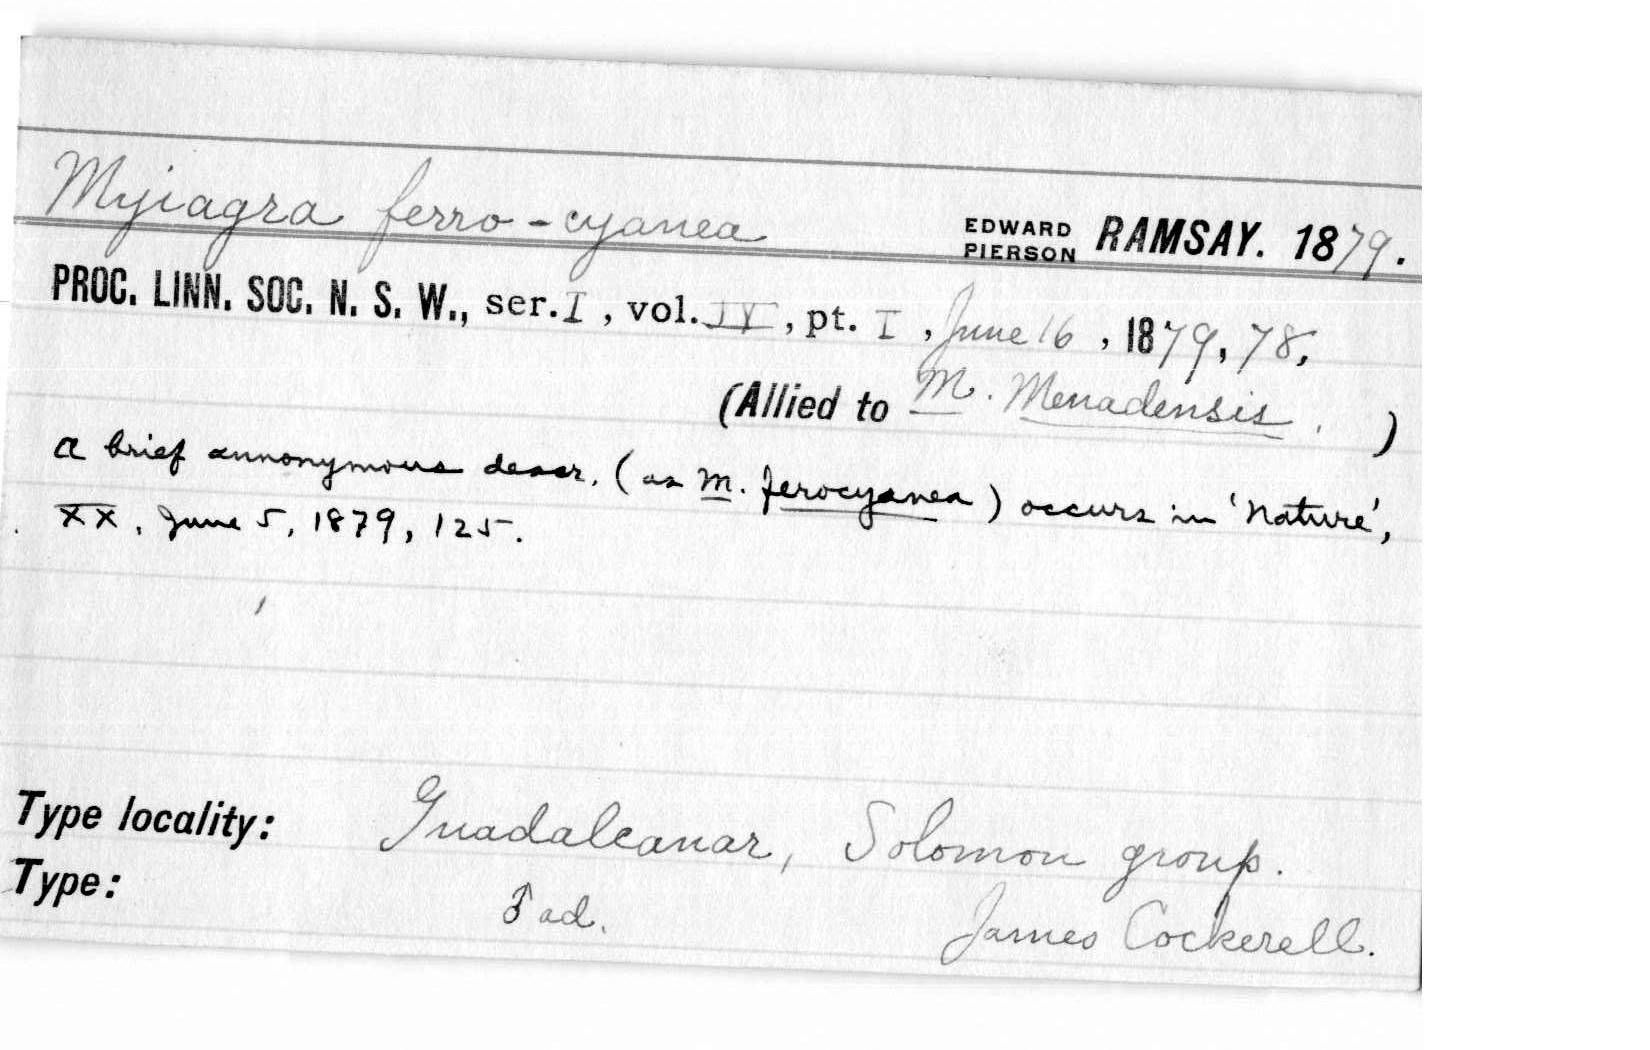 Myiagra ferro-cyanea EDWARD PIERSON RAMSAY. 1879.
PROC. LINN. SOC. N. S. W., ser. I, vol. IV, pt. I, June 16, 1879, 78,
(Allied to M. Menadensis. )
a brief annonymous descr. (as M. ferocyanea) occurs in 'Nature',
XX, June 5, 1879, 125.
Type locality: Guadalcanar, Solomon group.
Type: ♂ ad. James Cockerell.